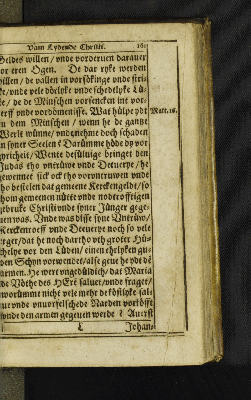 Vam Lydende Christi. 161
Geldes willen / vnde vorderuen darauer
or eren Ogen. De dar ryke werden
willen / de vallen in vorsökinge vnde stri-
ke / vnde vele dörlyke vnde schedelyke Lü-
ste / de de Minschen vorsencken int vor-
derff vnde vordömenisse. Wat hülpe ydt Matt. 16.
dem Minschen / wenn he de gantze
Werlt wünne / vnde neme doch schaden
an syner Seelen? Darümme höde dy vor
gyricheit / Wente desüluige bringet den
Judas tho vntrüwe vnde Deuerye / he
gewennet sick ock tho vorvntruwen vnde
tho bestelen dat gemeine Kerckengeldt / so
thom gemeenen nütte vnde nodtrofftigen
gebruke Christi vnde syner Jünger gege-
uen was. Vnde was disse syne Vntrüw /
Kerckenroeff vnde Deuerye noch so vele
erger / dat he noch dartho vth groter Hü-
chelye vor den Lüden / einen ehelyken gu-
den Schyn vorwendet / alse geue he ydt dē
armen. He were vngedüldich / dat Maria
de Vöthe des HEren saluet / vnde fraget /
worümme nicht vele mehr de köstlyke sal-
ue vnde vnuorfelschede Narden vorköfft
vnde den armen gegeuen werde? Auerst
L Johan-